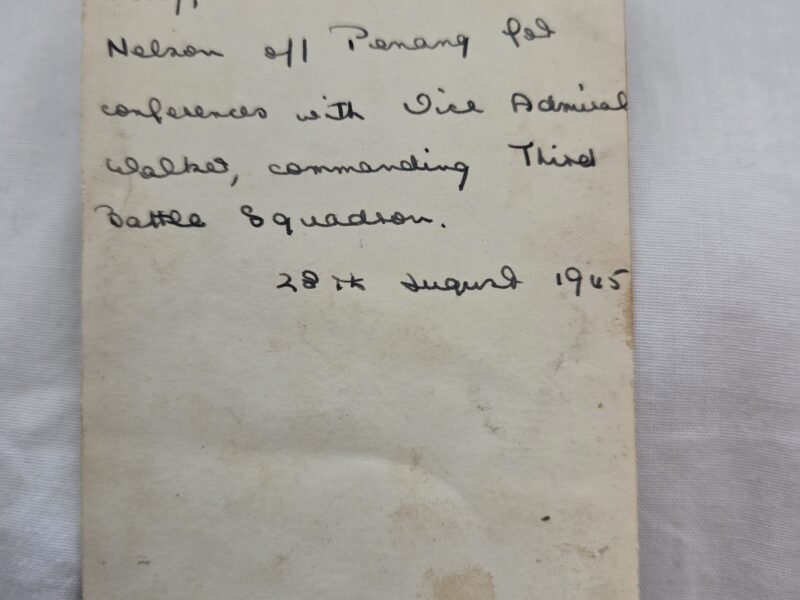 Nelson off Penang for
conferences with Vice Admiral
Walker, commanding Third
Battle Squadron.
28th August 1945